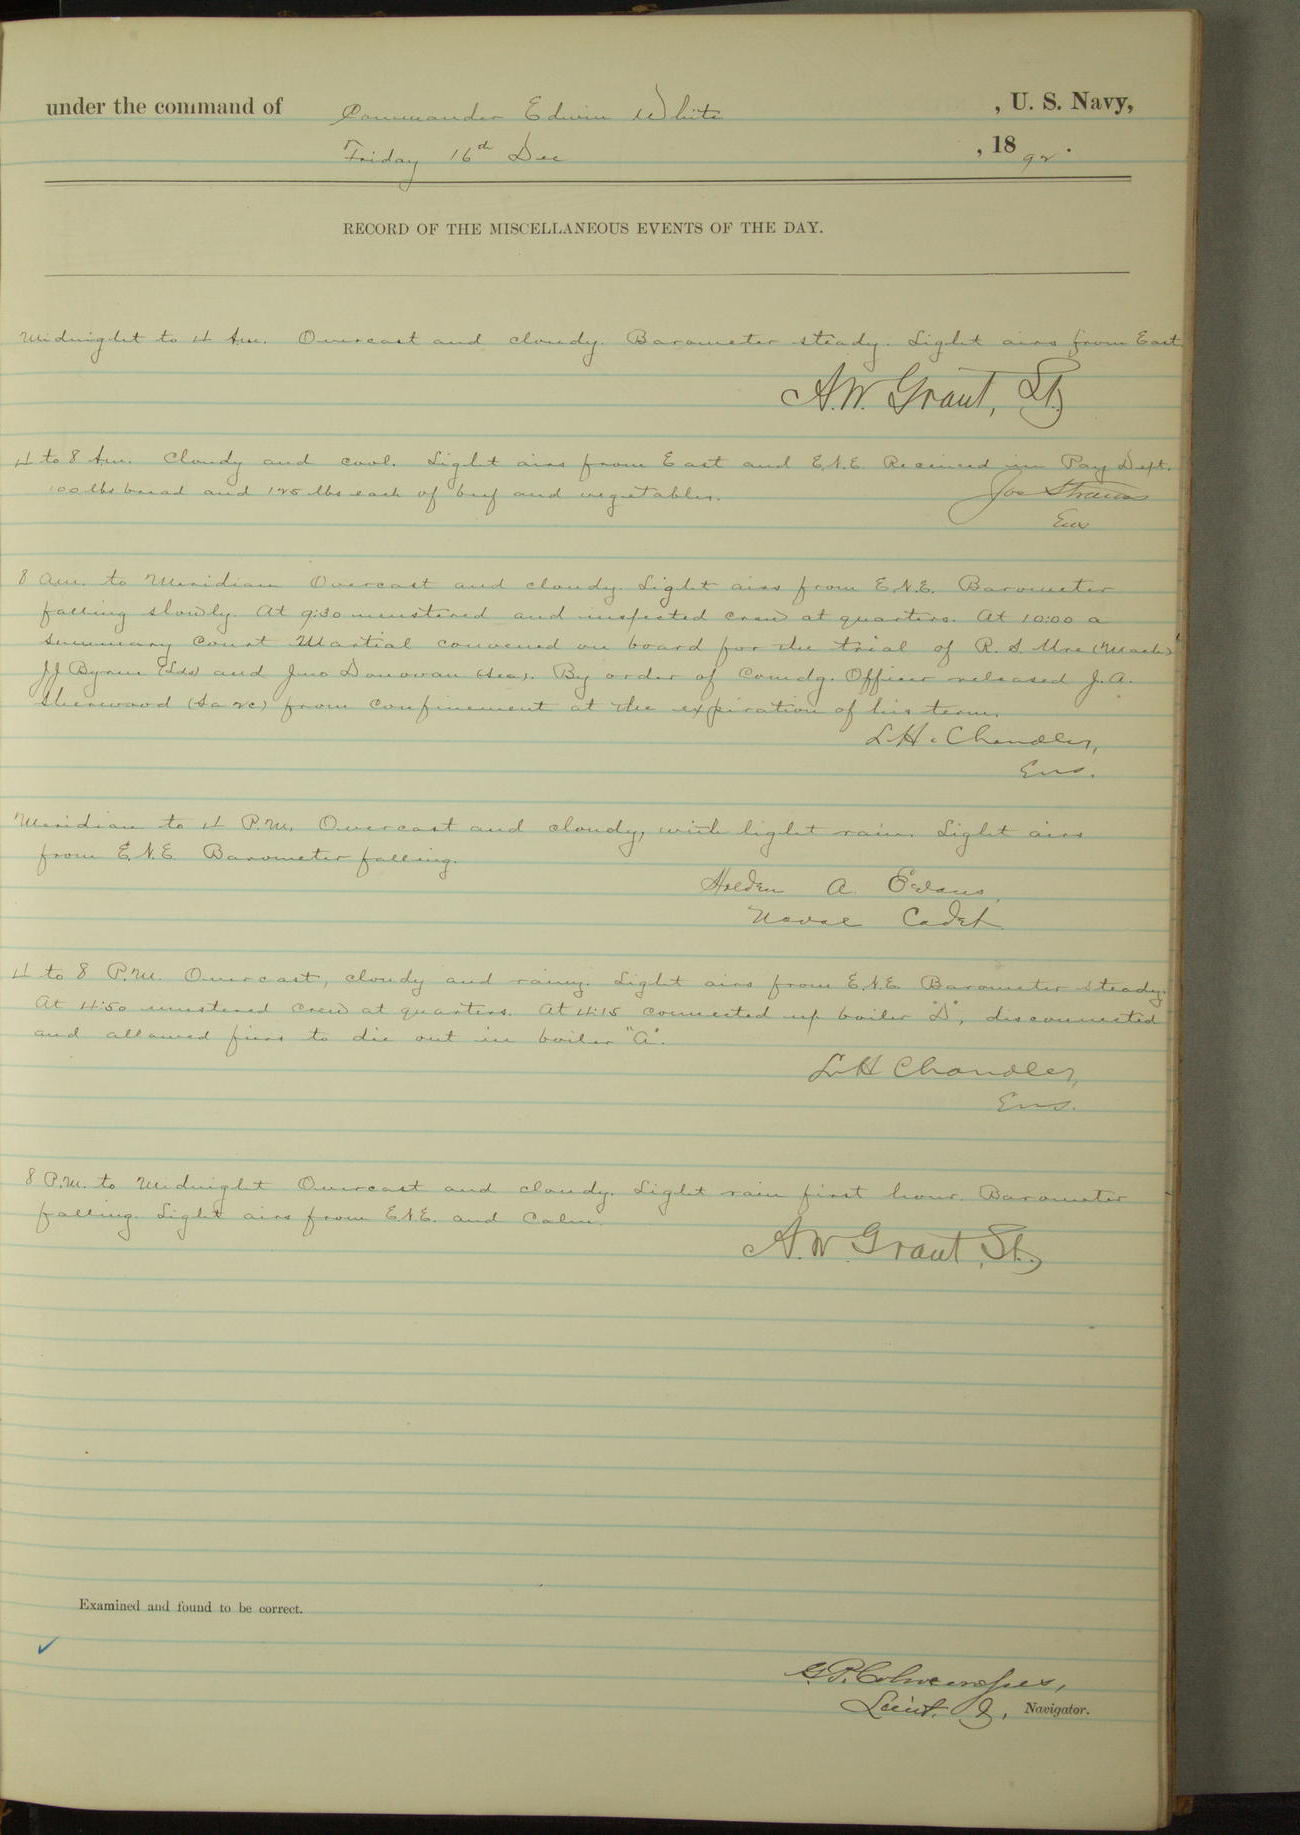 under the command of Commander Edwin White , U. S. Navy,
Friday 16th Dec , 1892.
RECORD OF THE MISCELLANEOUS EVENTS OF THE DAY.
Midnight to 4 Am. Overcast and cloudy. Barometer steady. Light airs from East
A.W. Grant, Lt.
4 to 8 Am. Cloudy and cool. Light airs from East and E.N.E. Received in Pay Dept.
100 lbs bread and 125 lbs each of beef and vegetables.
Jos Strauss
Ens
8 am. to Meridian Overcast and cloudy. Light airs from E.N.E. Barometer
falling slowly. At 9:30 mustered and inspected crew at quarters. At 10:00 a
summary Court Martial convened on board for the trial of R. S. (Mach)
JJ Byrne (Lds) and Jno Donovan (Sea). By order of Comdg. Officer released J. A.
Sherwood (Sa 2c) from confinement at the expiration of his term.
L.H. Chandler,
Ens.
Meridian to 4 P.M. Overcast and cloudy, with light rain. Light airs
from E.N.E. Barometer falling.
Holden A. Evans,
Naval Cadet
4 to 8 P.M. Overcast, cloudy and rainy. Light airs from E.N.E. Barometer steady.
At 4:50 mustered crew at quarters. At 4:15 connected up boiler "D", disconnected
and allowed fires to die out in boiler "A".
L.H Chandler,
Ens.
8 P.M. to Midnight Overcast and cloudy. Light rain first hour. Barometer
falling. Light airs from E.N.E. and Calm.
A.W. Grant, Lt.
Examined and found to be correct.
G.P. Colvocoresses,
Lieut. , Navigator.